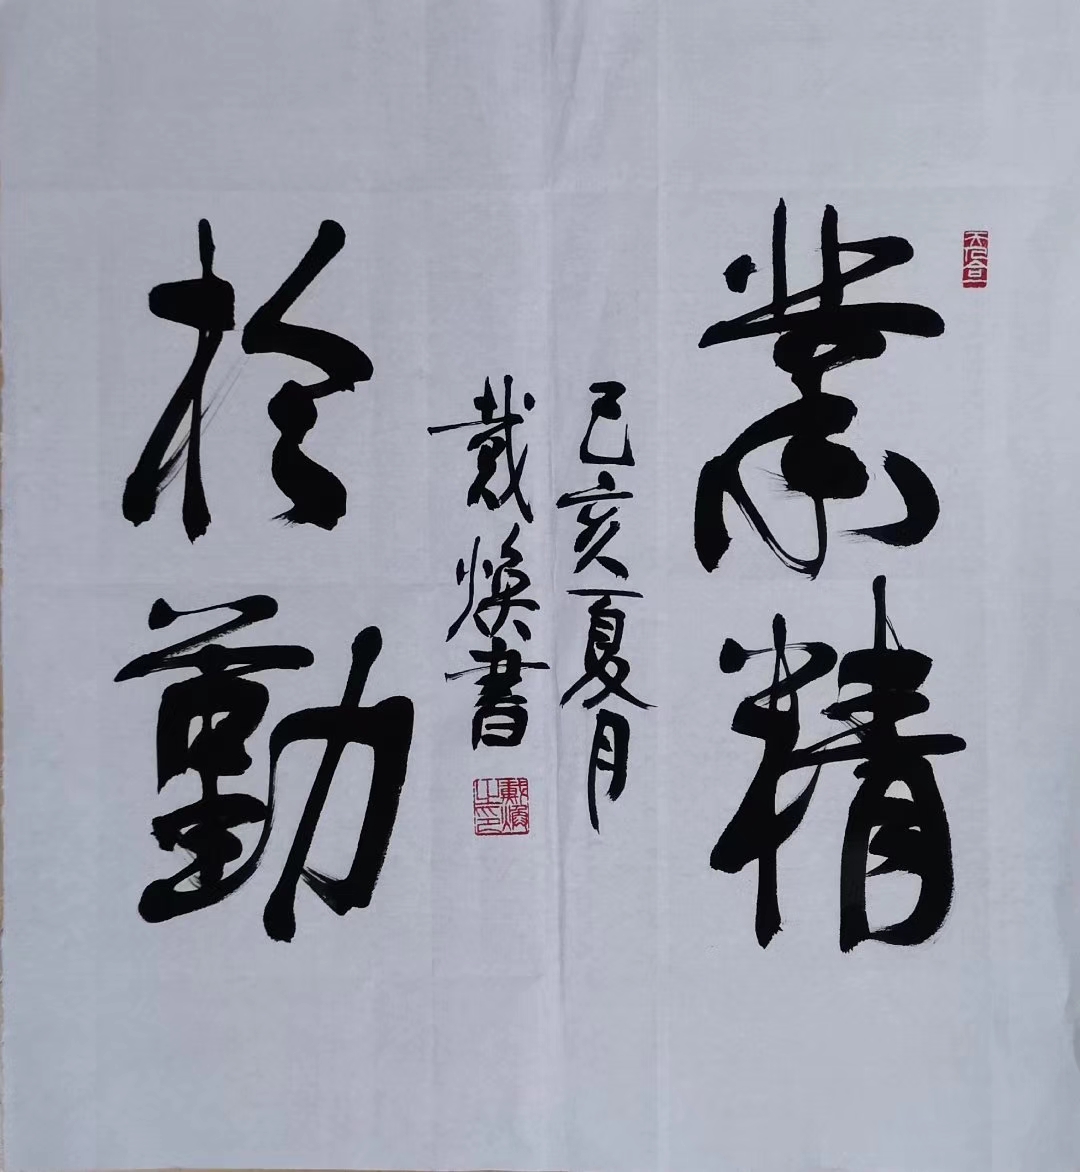 業精
於勤
己亥夏月
戴焕書